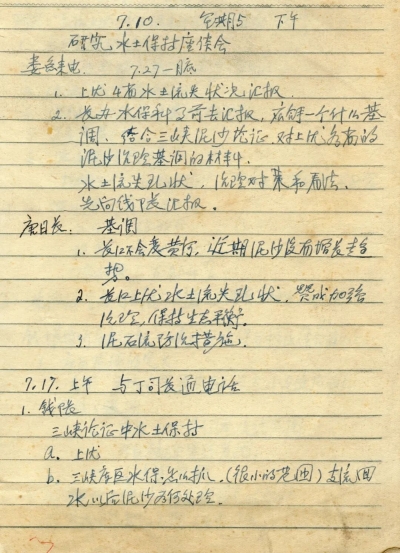 7.10. 星期5 下午
研究水土保持座谈会
7.27—月底
1. 上伏4省水土流失状况汇报
2. 长办水保科了前去汇报,一个什么基
调、结合三峡泥沙论证,对上伏各省的
泥沙治理基调的材料.
水土流失现状,治理对策和看法.
先向线下长汇报.
唐日长: 基调
1. 长江不会变黄河,近期泥沙没有增长趋
势。
2. 长江上伏水土流失现状,赞成加强
治理,保持生态平衡.
3. 泥石流防治措施.
7.17. 上午 与丁司长通电话
1. 钱
三峡论证中水土保持
a. 上伏
b. 三峡库区水保.怎么抓.(很小的范围)支流回
水以后泥沙如何处理.